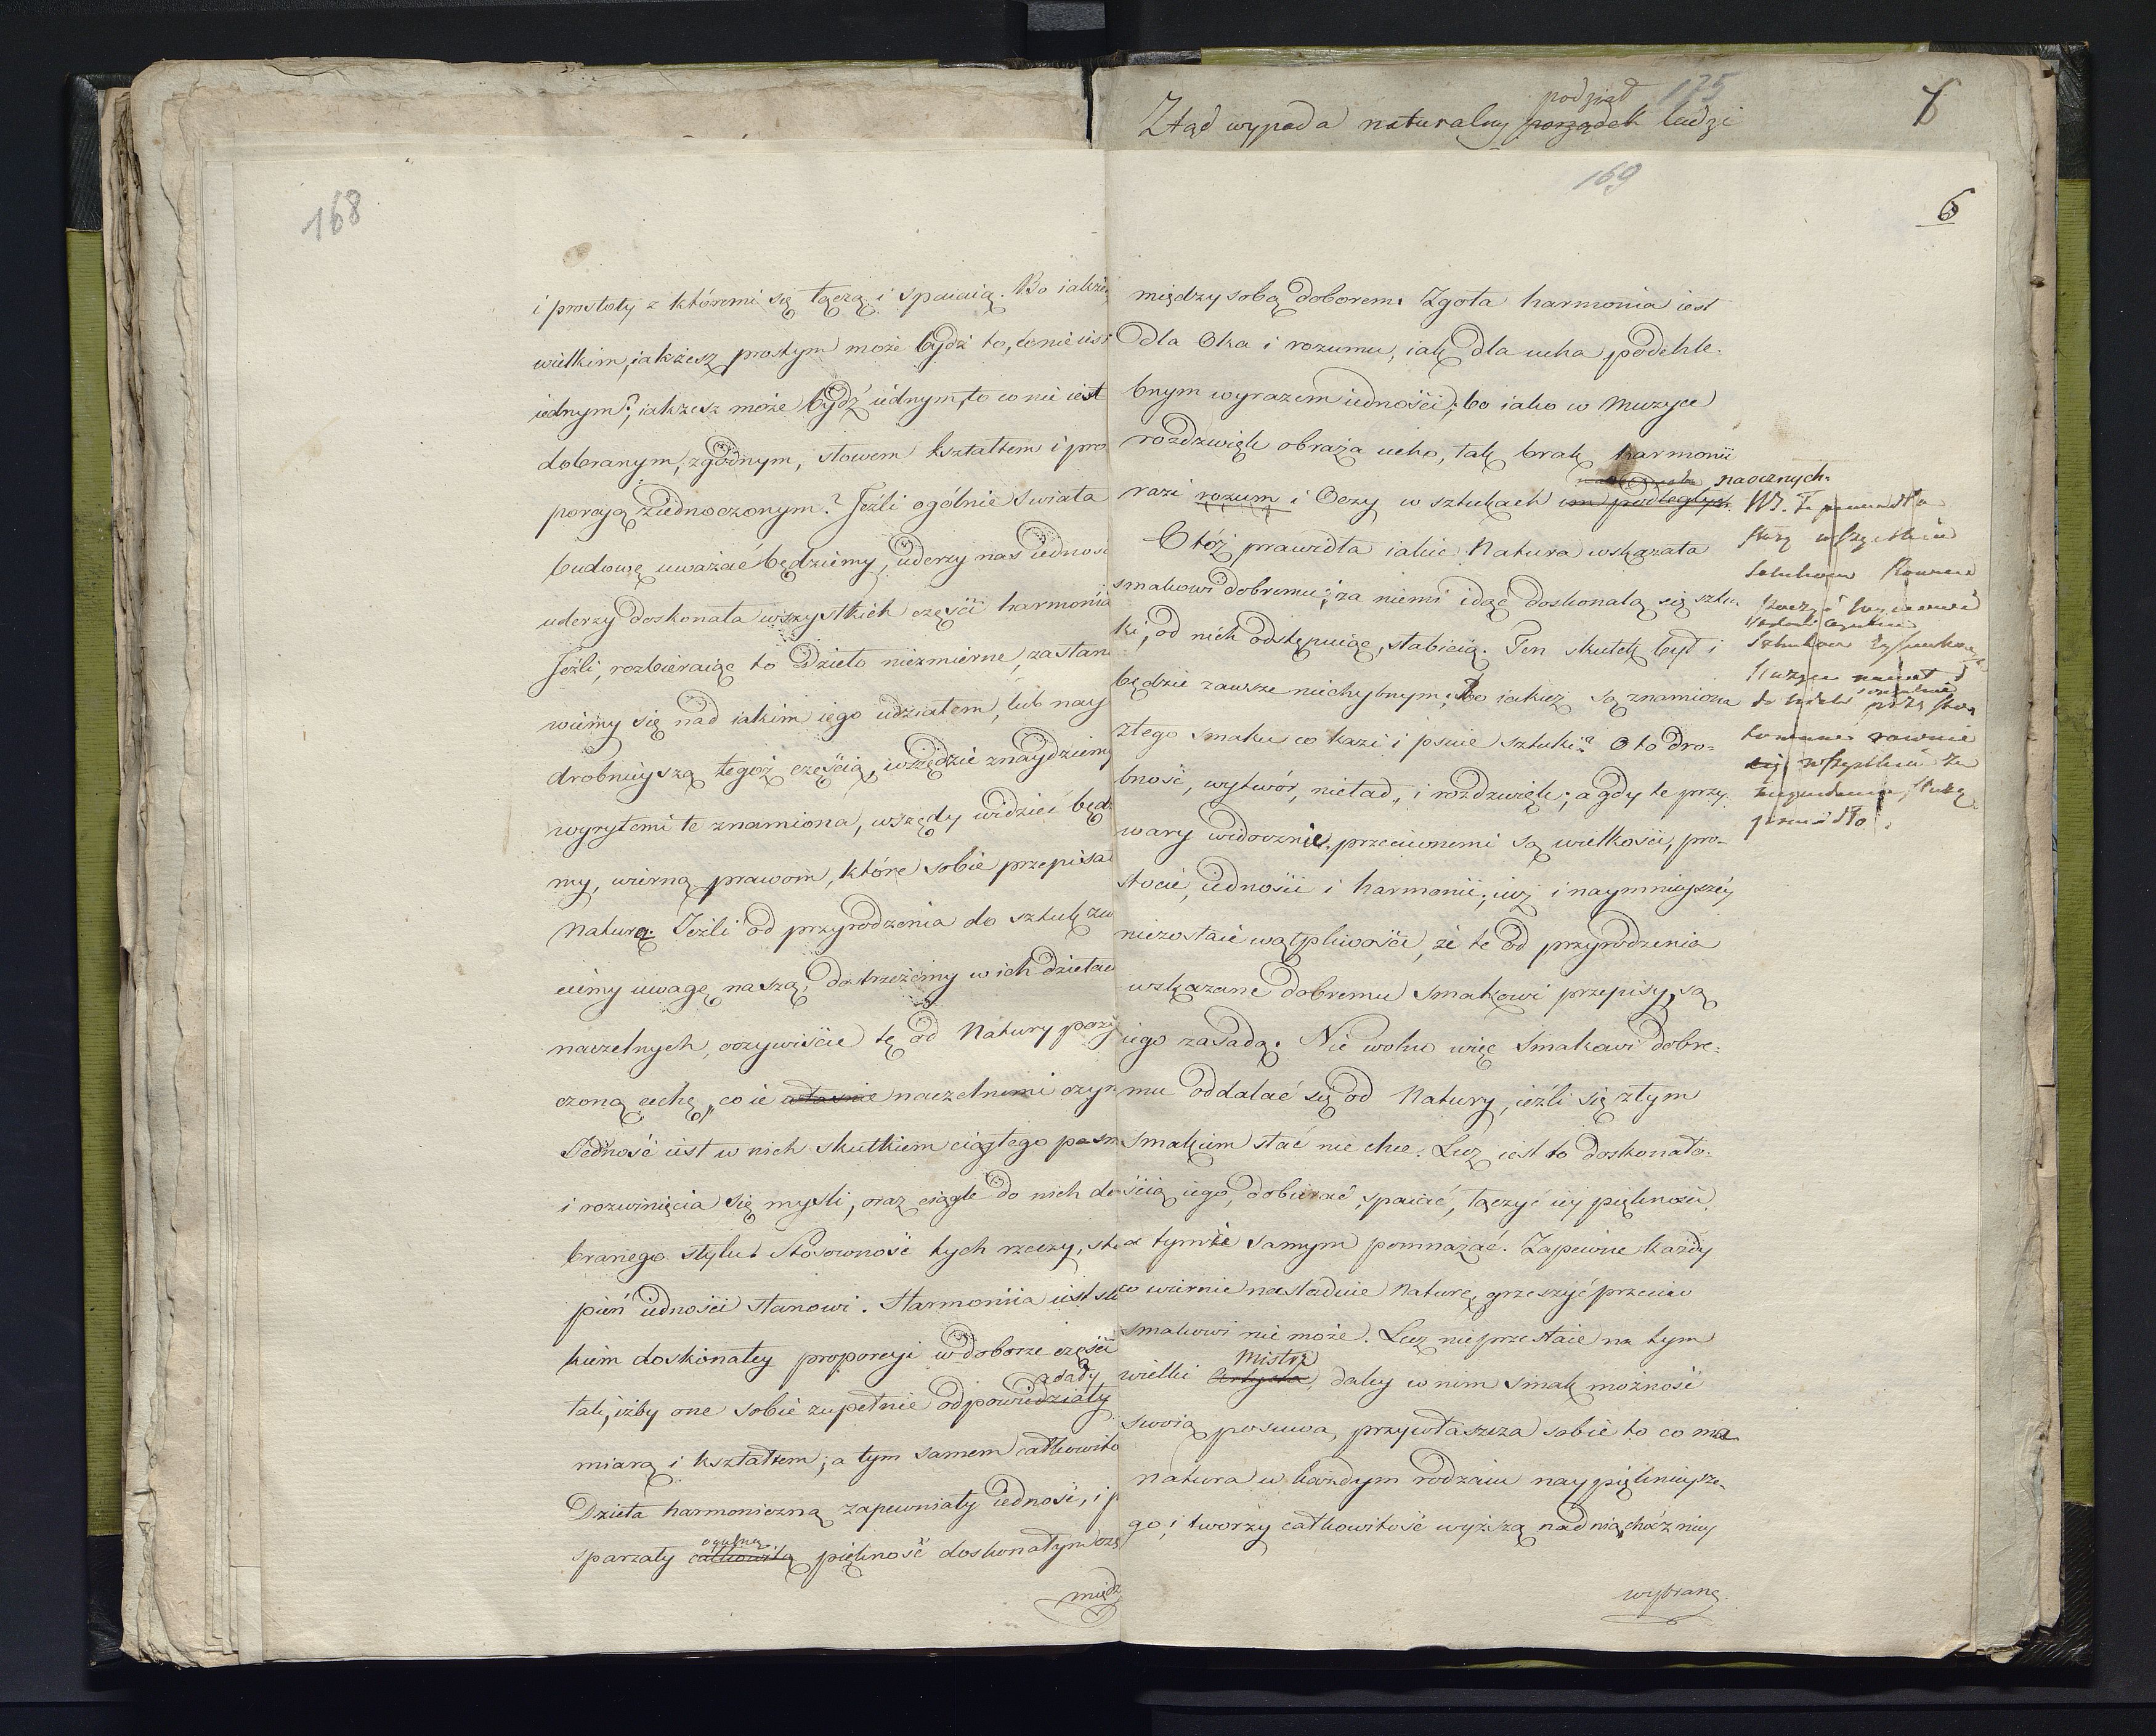 168
i prostoty z któremi się łączą i spaiaią. Bo iakże
wielkim, iakżesz prostym może bydź to, co nie iest
iednym?, iakżesz może bydź iednym, to co nie iest
dobranym, zgodnym, słowem kształtem i pro
porcyą ziednoczonym? Jeźli ogólnie świata
budowę uważać będziemy, uderzy nas iedność
uderzy doskonała wszystkich części harmoniia
Jeźli, rozbieraiąc to Dzieło niezmierne, zastano
wiemy się nad iakim iego udziałem, lub nay
drobnieyszą tegoż cześcią, wszędzie znaydziemy
wyrytemi te znamiona, wszędy widzieć będzie
my, wierną prawom, które sobie przepisała
Naturą. Jeźli od przyrodzenia do sztuk zwró
ciemy uwagę naszą, dostrzeżemy w ich dziełach
naczelnych, oczywiście tę od Natury poży
czoną cechę, co ie właśnie naczelnemi czyni
Jedność iest w nich skutkiem ciągłego pasma
i rozwinięcia się myśli, oraz ciągle do nich do
branego stylu. Stósowność tych rzeczy, sto
pień iedności stanowi. Harmoniia iest sku
kiem doskonałey proporcyi w doborze części
adały
tak, iżby one sobie zupełnie odpowiedziały
miarą i kształtem; a tym samem całkowito
Dzieła harmoniczną zapewniały iedność, i p
ogulną
sparzały całkowitą piękność doskonałym czę
międz
Ztąd wypada naturalny porządek ludzi
podział
175
7
169
6
między sobą doborem. Zgoła harmonia iest
dla Oka i rozumu, iak dla ucha, podchle-
bnym wyrazem iedności; bo iako w Muzyce
rozdzwięk obraża ucho, tak brak harmonii
naocznych.
razi rozum i Oczy w sztukach im podległych.
Otóż prawidła iakie Natura wskazała
smakowi dobremu; za niemi idąc doskonalą się sztu-
ki, od nich odstępuiąc, słabieią. Ten skutek był i
będzie zawsze niechybnym; Bo iakież są znamiona
złego smaku co kazi i psuie sztuki? Oto dro-
bność, wytwór, nieład, i rozdzwięk; a gdy te przy-
wary widocznie przeciwnemi są wielkości, pro-
stocie, iedności i harmonii; iuż i naymnieyszéy
niezostaie wątpliwości, że te od przyrodzenia
wskazane dobremu smakowi przepisy, są
iego zasadą. Nie wolno więc Smakowi dobre-
mu oddalać się od Natury, ieźli się złym
smakiem stać nie chce. Lecz iest to doskonało-
ścią iego, dobierać, spaiać, łączyć iey piękności
a tymże samym pomnażać. Zapewne każdy
co wiernie naśladuie Naturę, grzeszyć przeciw
smakowi nie może. Lecz nie przestaie na tym
Mistrz
wielki Artysta, daley w nim smak możność
swoią posuwa, przywłaszcza sobie to co ma
natura w każdym rodzaiu naypięknieysze-
go, i tworzy całkowitość wyższą nad nią, choć z niey
wybraną.
służą wszystkim
równie
wszystkim
służą
prawidło.